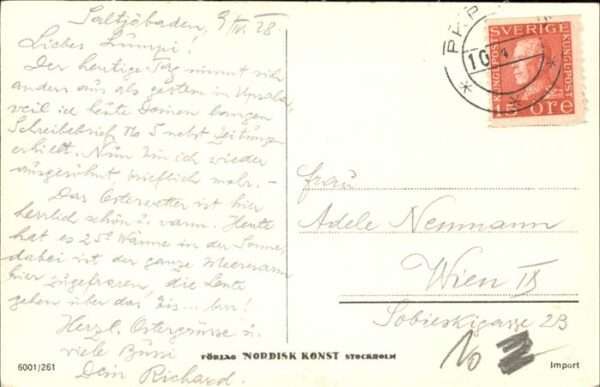 Saltjöbaden, 9/IV. 28
Liebes Lumpi!
Der heutige Tag nimmt sich
anders aus als gestern in Upsala,
weil ich heute Deinen langen
Schreibebrief No 5 nebst Zeitungen
erhielt. Nun bin ich wieder
ausgesühnt brieflich mehr. –
Das Osterwetter ist hier
herrlich schön u. warm. Heute
hat es 25° Wärme in der Sonne,
dabei ist der ganze Meeresarm
hier zugefroren, die Leute
gehen über das Eis... brr!
Herzl. Ostergrüsse u.
viele Bussi
Dein Richard.
6001/261
FÖRLAG NORDISK KONST STOCKHOLM
Import
PKP
10 4
SVERIGE
KUNGL POST
KUNGL POST
15 ÖRE
Frau
Adele Neumann
Wien IX
Sobieskigasse 23
No